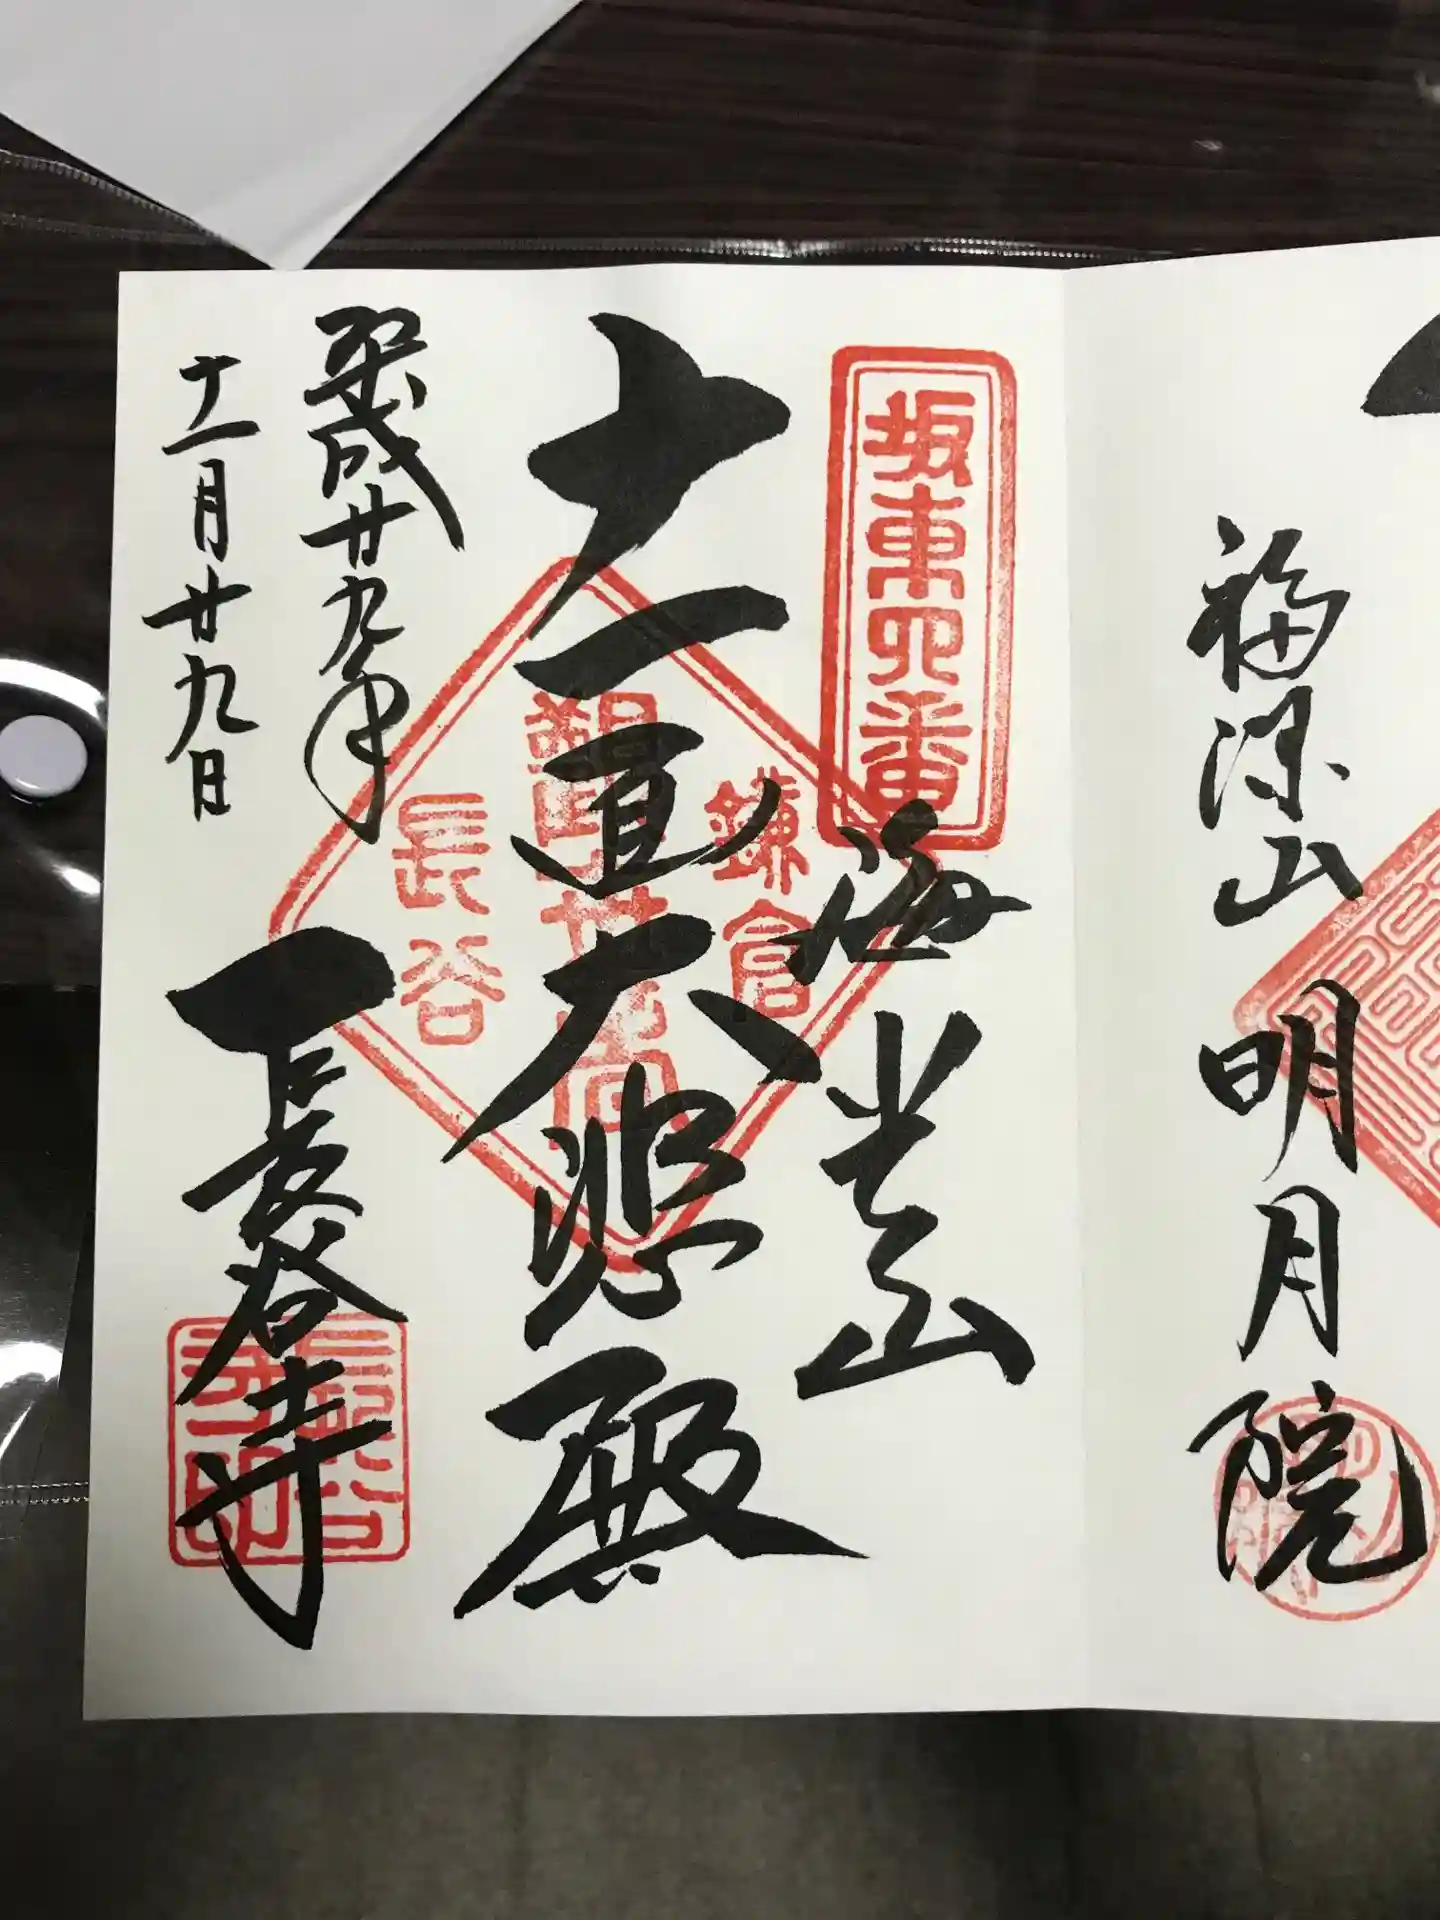 福源山
明月院
坂東四番
海光山
十一面大悲殿
鎌倉
長谷
平成廿九年
十一月廿九日
長谷寺
長谷
寺印